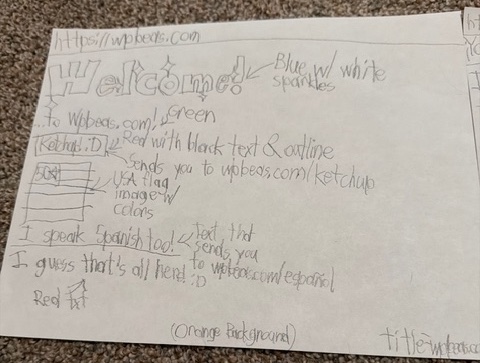 https://wpbeas.com
Welcome!
Blue w/ white
sparkles
...to wpbeas.com!
Green
Ketchup :D
Red with black text & outline
Sends you to wpbeas.com/ketchup
USA flag
image w/
colors
I speak Spanish too!
Text that
sends you
to wpbeas.com/español
I guess that's all here! :D
Red txt
(Orange Background)
title-wpbeas.co